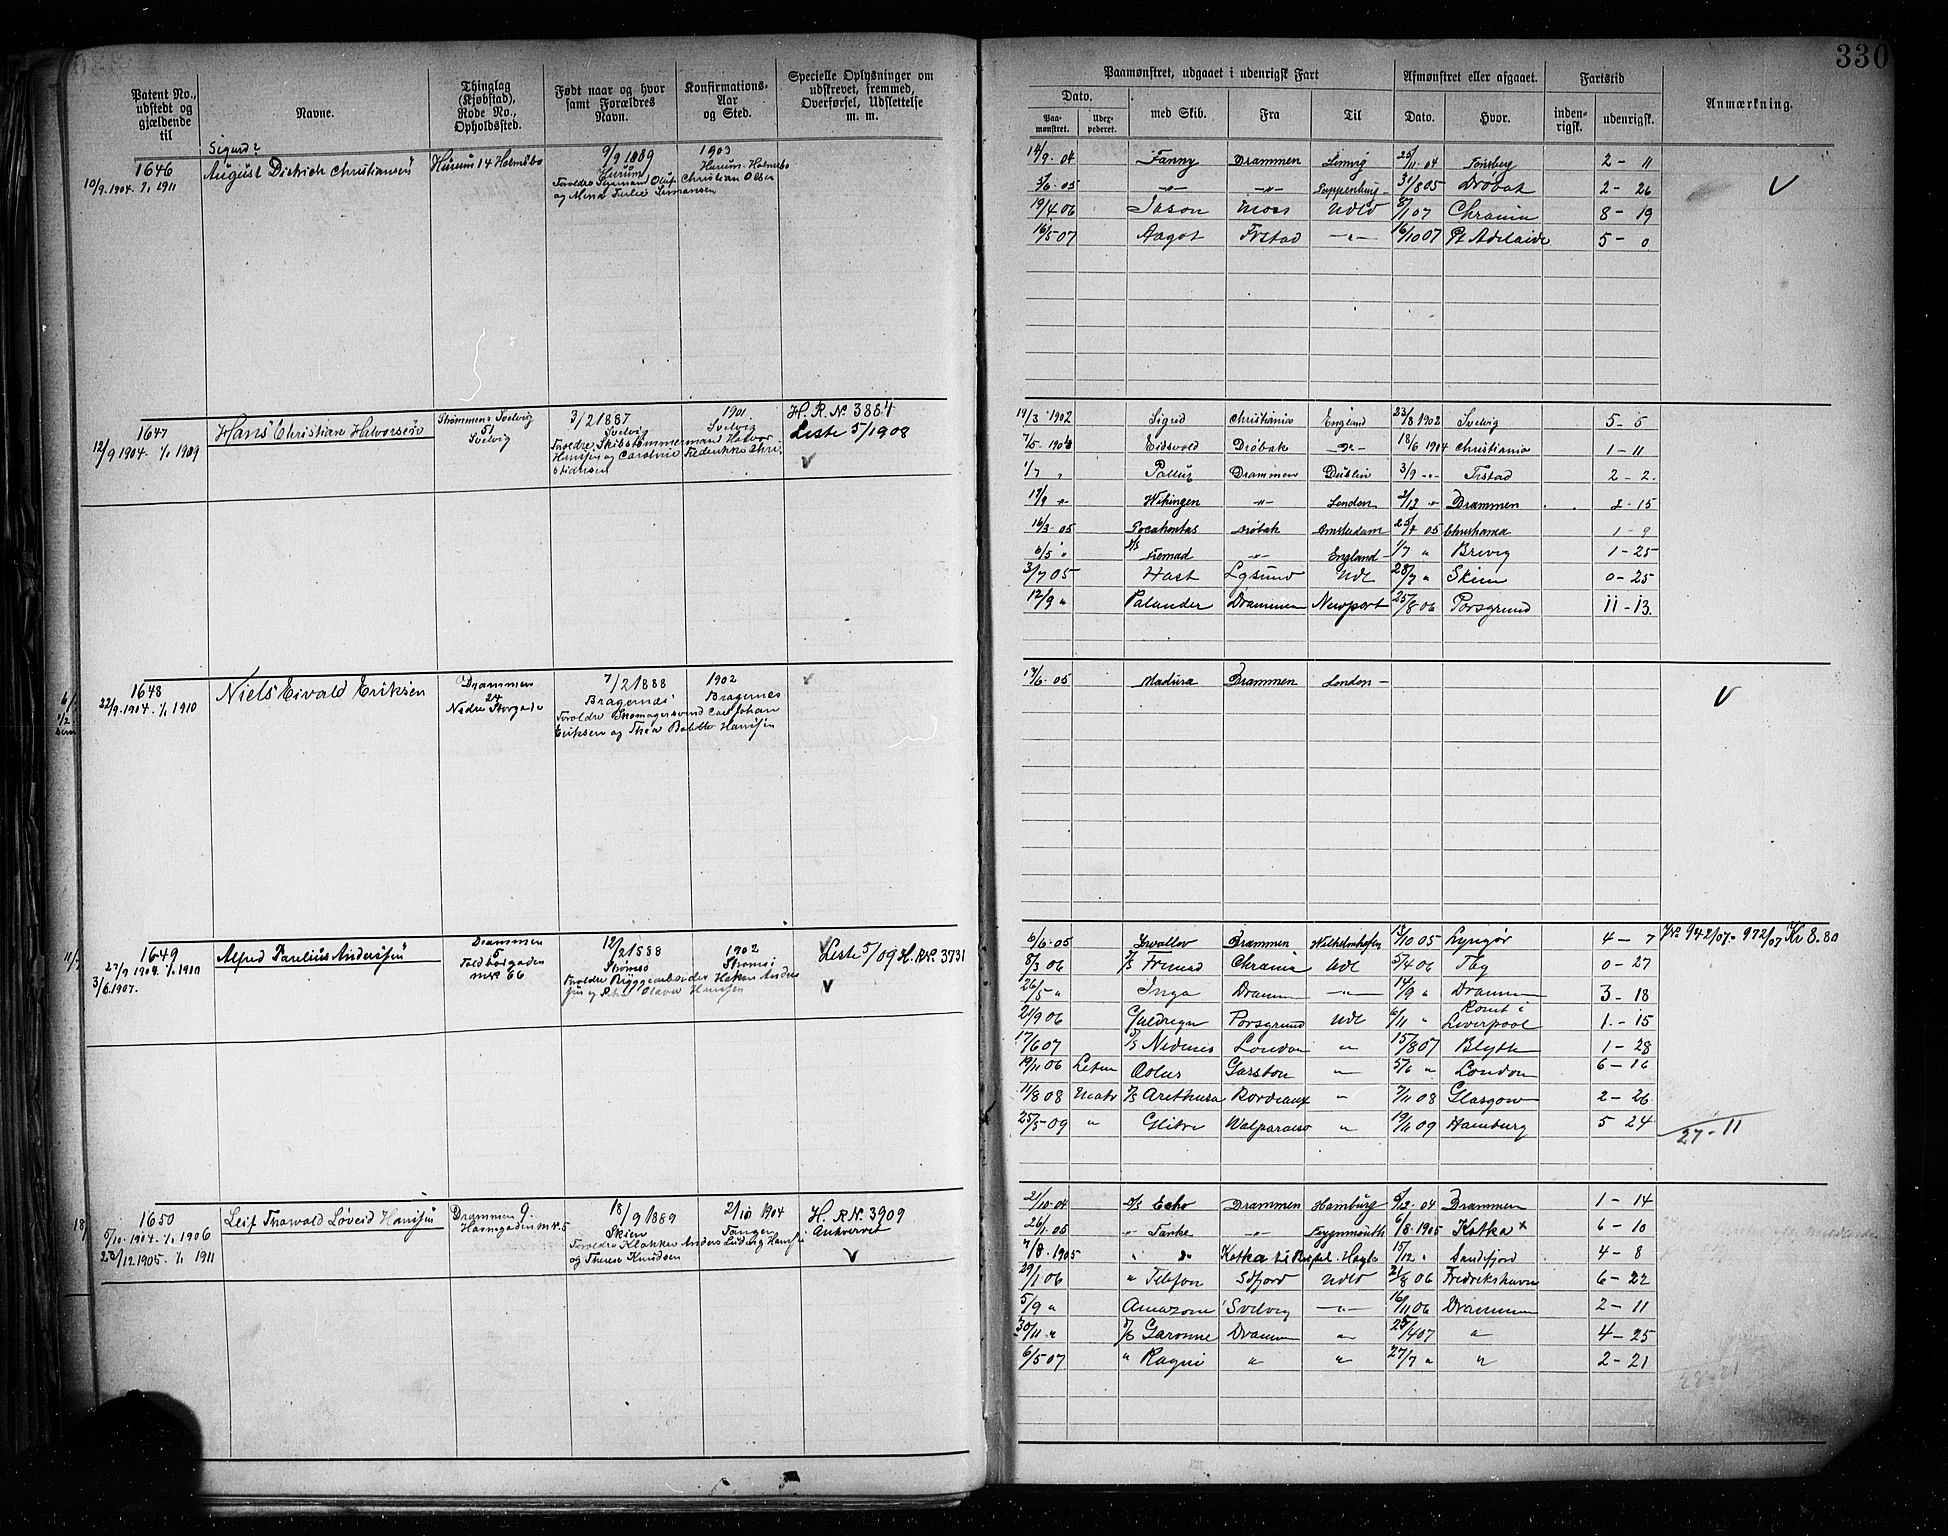 330
Patent No., udstedt og gjældende til
Navne.
Thinglag (Kjøbstad), Rode No., Opholdssted.
Født naar og hvor samt Forældres Navn.
Konfirmations-Aar og Sted.
Specielle Oplysninger om udskrevet, fremmed, Overførsel, Udslettelse m. m.
Paamønstret, udgaaet i udenrigsk Fart
Afmønstret eller afgaaet.
Fartstid
Anmærkning.
Dato.
Paa-mønstret.
med Skib.
Fra
Til
Dato.
Hvor.
inden-rigsk.
udenrigsk.
Sigurd?
1646
10/9.1904. 1/1 1911
August Diedrich Christiansen
Hurum 14 Holmsbo
9/9 1889
Hurum
1903
Hurum-Holmsbo
14/9.04 Fanny Drammen Lemvig 25/11.04 Tønsberg 2-11
5/6.05 -"- -"- Pappenburg 31/8 05 Drøbak 2-26
19/4.06 Jason Moss Udld 8/1 07 Chrania 8-19
16/5.07 Aagot Frstad -"- 16/10 07 Pt Adelaide 5-0
1647
12/9 1904. 1/1 1909
Hans Christian Halvorsen
Strømmens Svelvig
51
Svelvig
3/2 1887
Svelvig
1901
Svelvig
Foroldre Skibstømmermand Halvor
Hansen og Caroline Frederikke Chri-
stiansen
H. R. No 3884
Liste 5/1908
19/3 1902 Sigrid Christiania England 23/8 1902 Svelvig 5-5
7/5 Eidsvold Drøbak -"- 18/6 1904 Christiania 1-11
1/7 " Pallux Drammen Dublin 3/9 -"- Frstad 2-2.
17/9 " Wikingen -"- London 2/12 " Drammen 2-15
16/3.05 Pocahontas Drøbak Amsterdam 25/4 05 Christiania 1-9
6/5 " D/S Fremad -"- England 1/7 " Brevig 1-25
3/7 05 Hast Lgsund Udl 28/7 " Skien 0-25
12/9 " Palander Drammen Newport 25/8 06 Porsgrund 11-13.
1648
22/9.1904. 1/1 1910
Niels Eivald Eriksen
Drammen
24
Nedre Storgade
7/2 1888
Bragernæs
1902
Bragernes
Foroldre Skomagersvend Carl Johan
Eriksen og Thea Hanssen
17/6.05 Madura Drammen London
1649
27/9 1904. 1/1 1910
3/6.1907.
Alfred Paulius Anderssen
Drammen
5
No 66
12/2 1888
Strømsø
1902
Strømsø
Foroldre Bryggearbeider Haken Anders-
sen og Olava Hanssen
Liste 5/09 H. R No. 3731
6/6.05 Svallov Drammen Wilhelmhafen 13/10 05 Lyngør 4-7
No 942/07-972/07 Kr 8.80
8/3 06 D/S Fremad Chrania Udl 5/4 06 Tbg 0-27
26/5 " Inga Dramm -"- 14/9 " Dramm 3-18
21/9 06 Guldregn Porsgrund Udl 6/11 " Romt i Liverpool 1-15
17/6 07 D/S Nedenes London " 15/8 07 Blyth 1-28
19/11 06 Letm Oolus Garston " 5/6 " London 6-16
11/8 08 Matr D/S Arethusa Bordeaux " 7/11 08 Glasgow 2-26
25/5-09 " Glitre Walparaiso " 19/11 09 Hamburg 5 24
27-11
1650
5/10.1904. 1/1 1906
23/12 1905. 1/1 1911
Leif Thorvald Løveid Hanssen
Drammen 9.
Havnegaden No 5
18/9 1889
Skien
2/10 1904
Tangen
Foroldre Klokker Anders Ludvig Hanssen
og Therese Knudsen
H. R No. 3909
Ankvervet
21/10.04 D/S Echo Drammen Hamburg 5/12.04 Drammen 1-14
26/1.05 " Tanke -"- Teygnmouth 6/8.1905 Kotka + 6-10
7/8.1905 " " Kotka 15/12 " Sandefjord 4-8
29/1 06 " Telefon Sdfjord Udld 21/8 06 Fredrikshavn 6-22
5/9 " Amazone Svelvig -"- 16/11 06 Drammen 2-11
30/11 " D/S Garonne Dramm " 25/4 07 " 4-25
6/5 07 " Ragni " " 27/7 " " 2-21